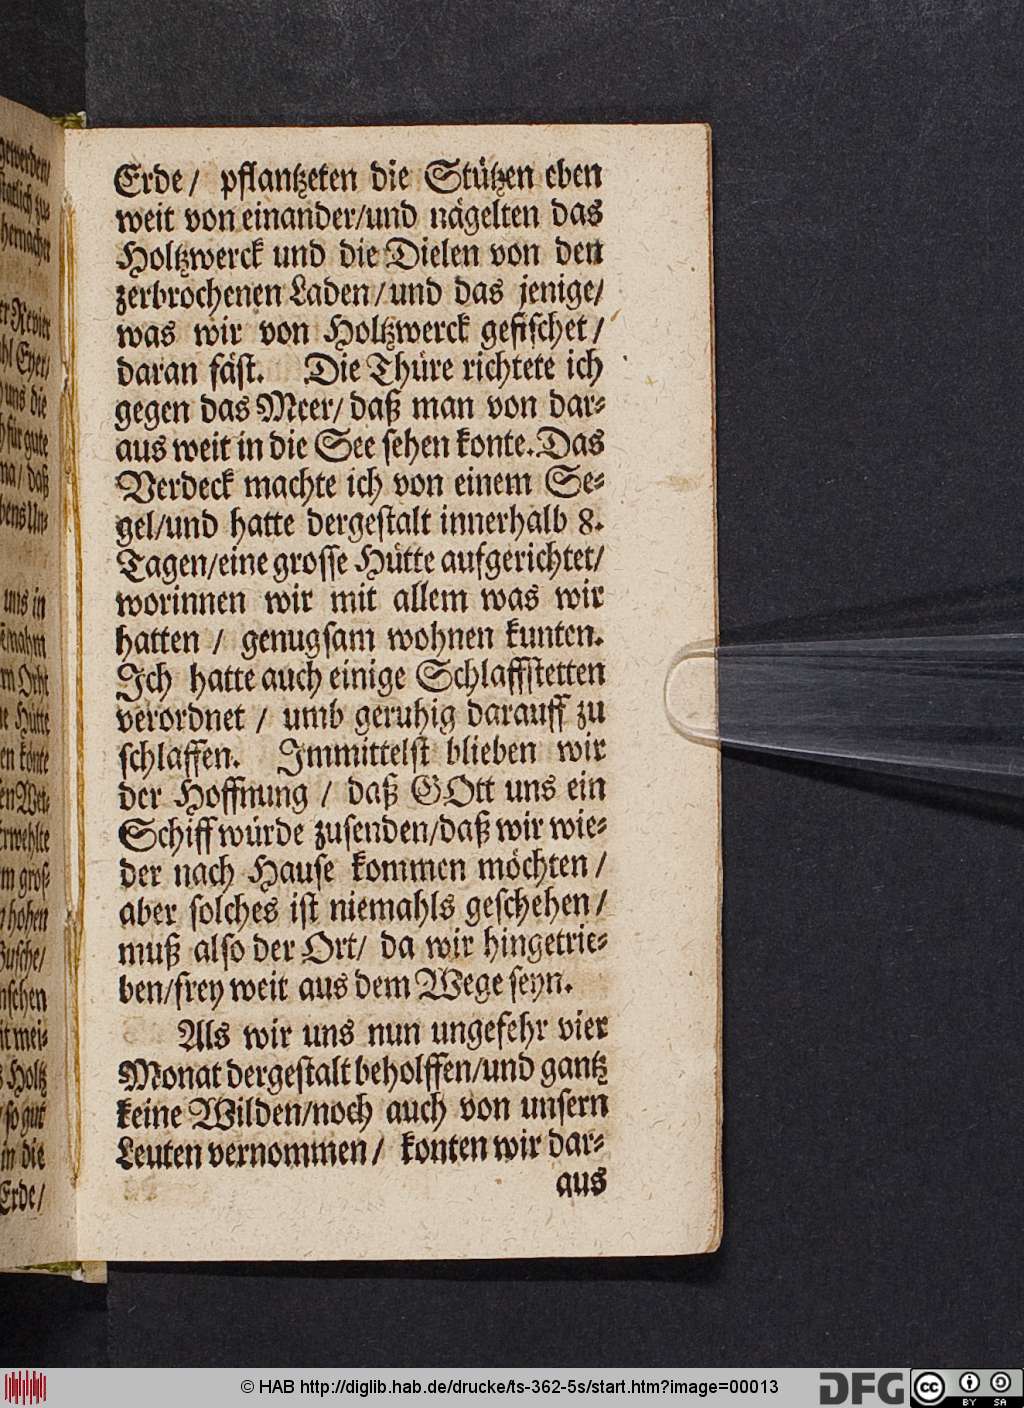 Erde/ pflantzeten die Stützen eben
weit von einander/und nägelten das
Holtzwerck und die Dielen von den
zerbrochenen Laden/und das jenige/
was wir von Holtzwerck gefischet/
daran fäst. Die Thüre richtete ich
gegen das Meer/ daß man von dar-
aus weit in die See sehen konte. Das
Verdeck machte ich von einem Se-
gel/und hatte dergestalt innerhalb 8.
Tagen/eine grosse Hütte aufgerichtet/
worinnen wir mit allem was wir
hatten / genugsam wohnen kunten.
Ich hatte auch einige Schlaffstetten
verordnet / umb geruhig darauff zu
schlaffen. Immittelst blieben wir
der Hoffnung / daß GOtt uns ein
Schiff würde zusenden/daß wir wie-
der nach Hause kommen möchten /
aber solches ist niemahls geschehen/
muß also der Ort/ da wir hingetrie-
ben/frey weit aus dem Wege seyn.
Als wir uns nun ungefehr vier
Monat dergestalt beholffen/und gantz
keine Wilden/noch auch von unsern
Leuten vernommen/ konten wir dar-
aus
uns die
für gute
daß
uns in
Hütte
hohen
Holtz
so gut
in die
Erde/
© HAB http://diglib.hab.de/drucke/ts-362-5s/start.htm?image=00013
DFG
cc
BY SA